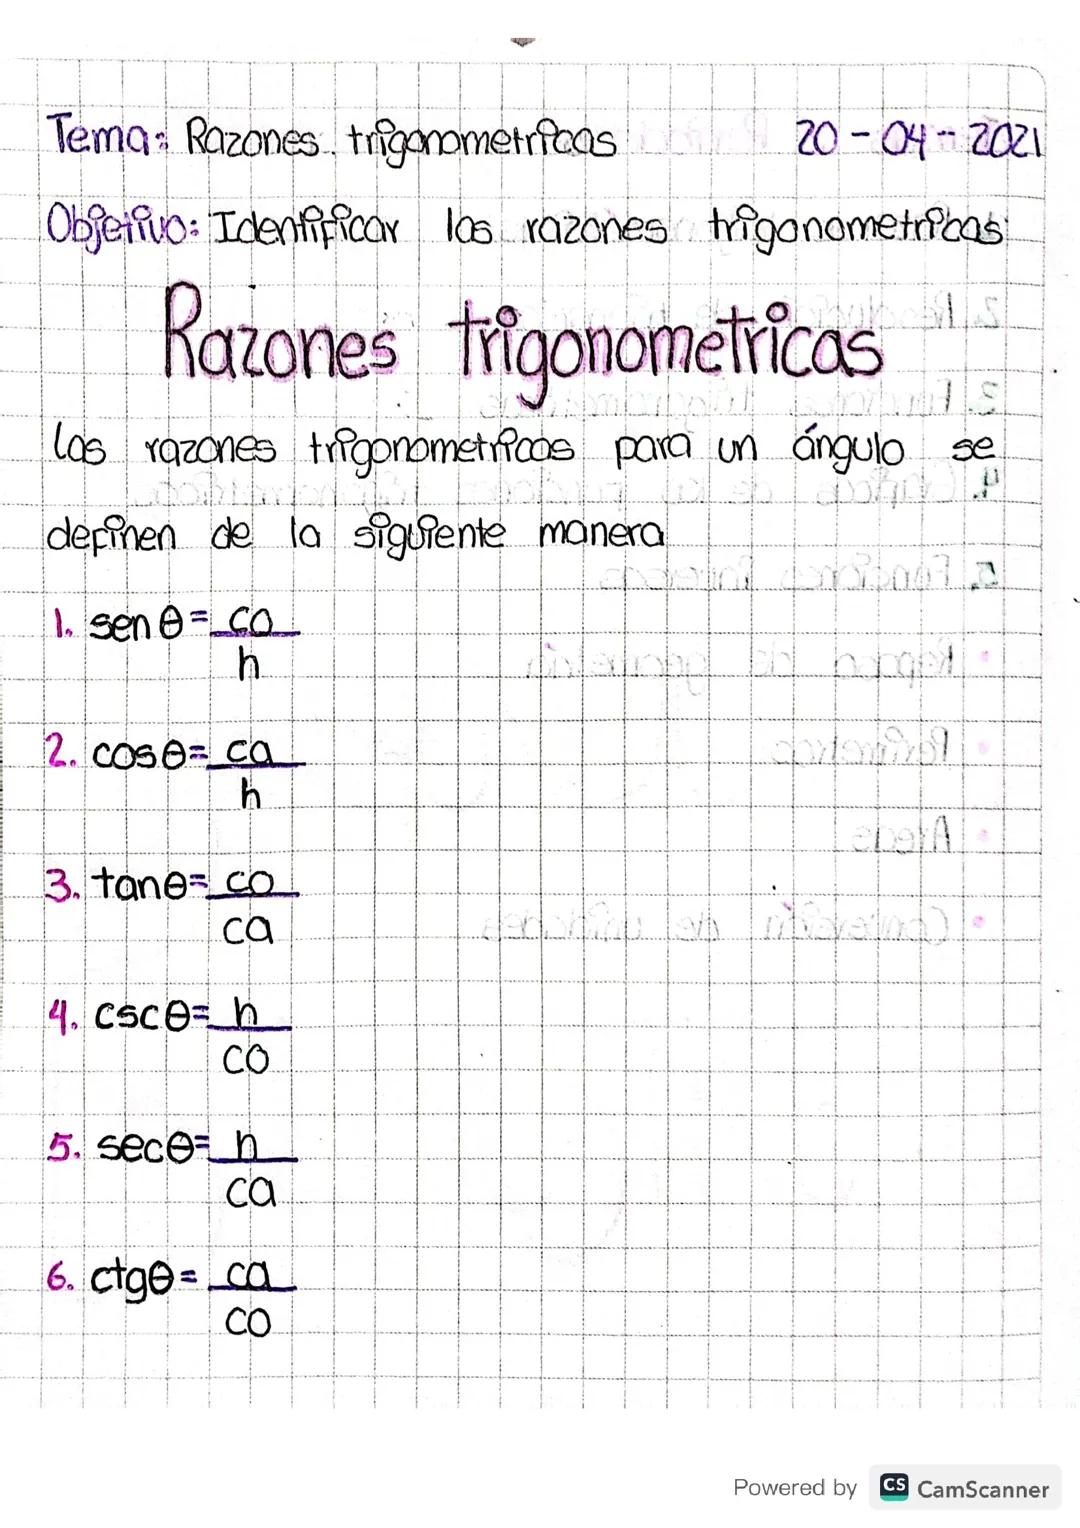 Tema: Razones trigonometricas 20-04-2021
Objetivo: Identificar las razones trigonometricas
Razones trigonometricas
las razones trigonometricas para un ángulo se
definen de la siguiente manera
1. sen θ = co
h
2. cosθ = ca
h
3. tanθ = co
ca
4. cscθ = h
co
5. secθ = h
ca
6. ctgθ = ca
co
Powered by CS CamScanner